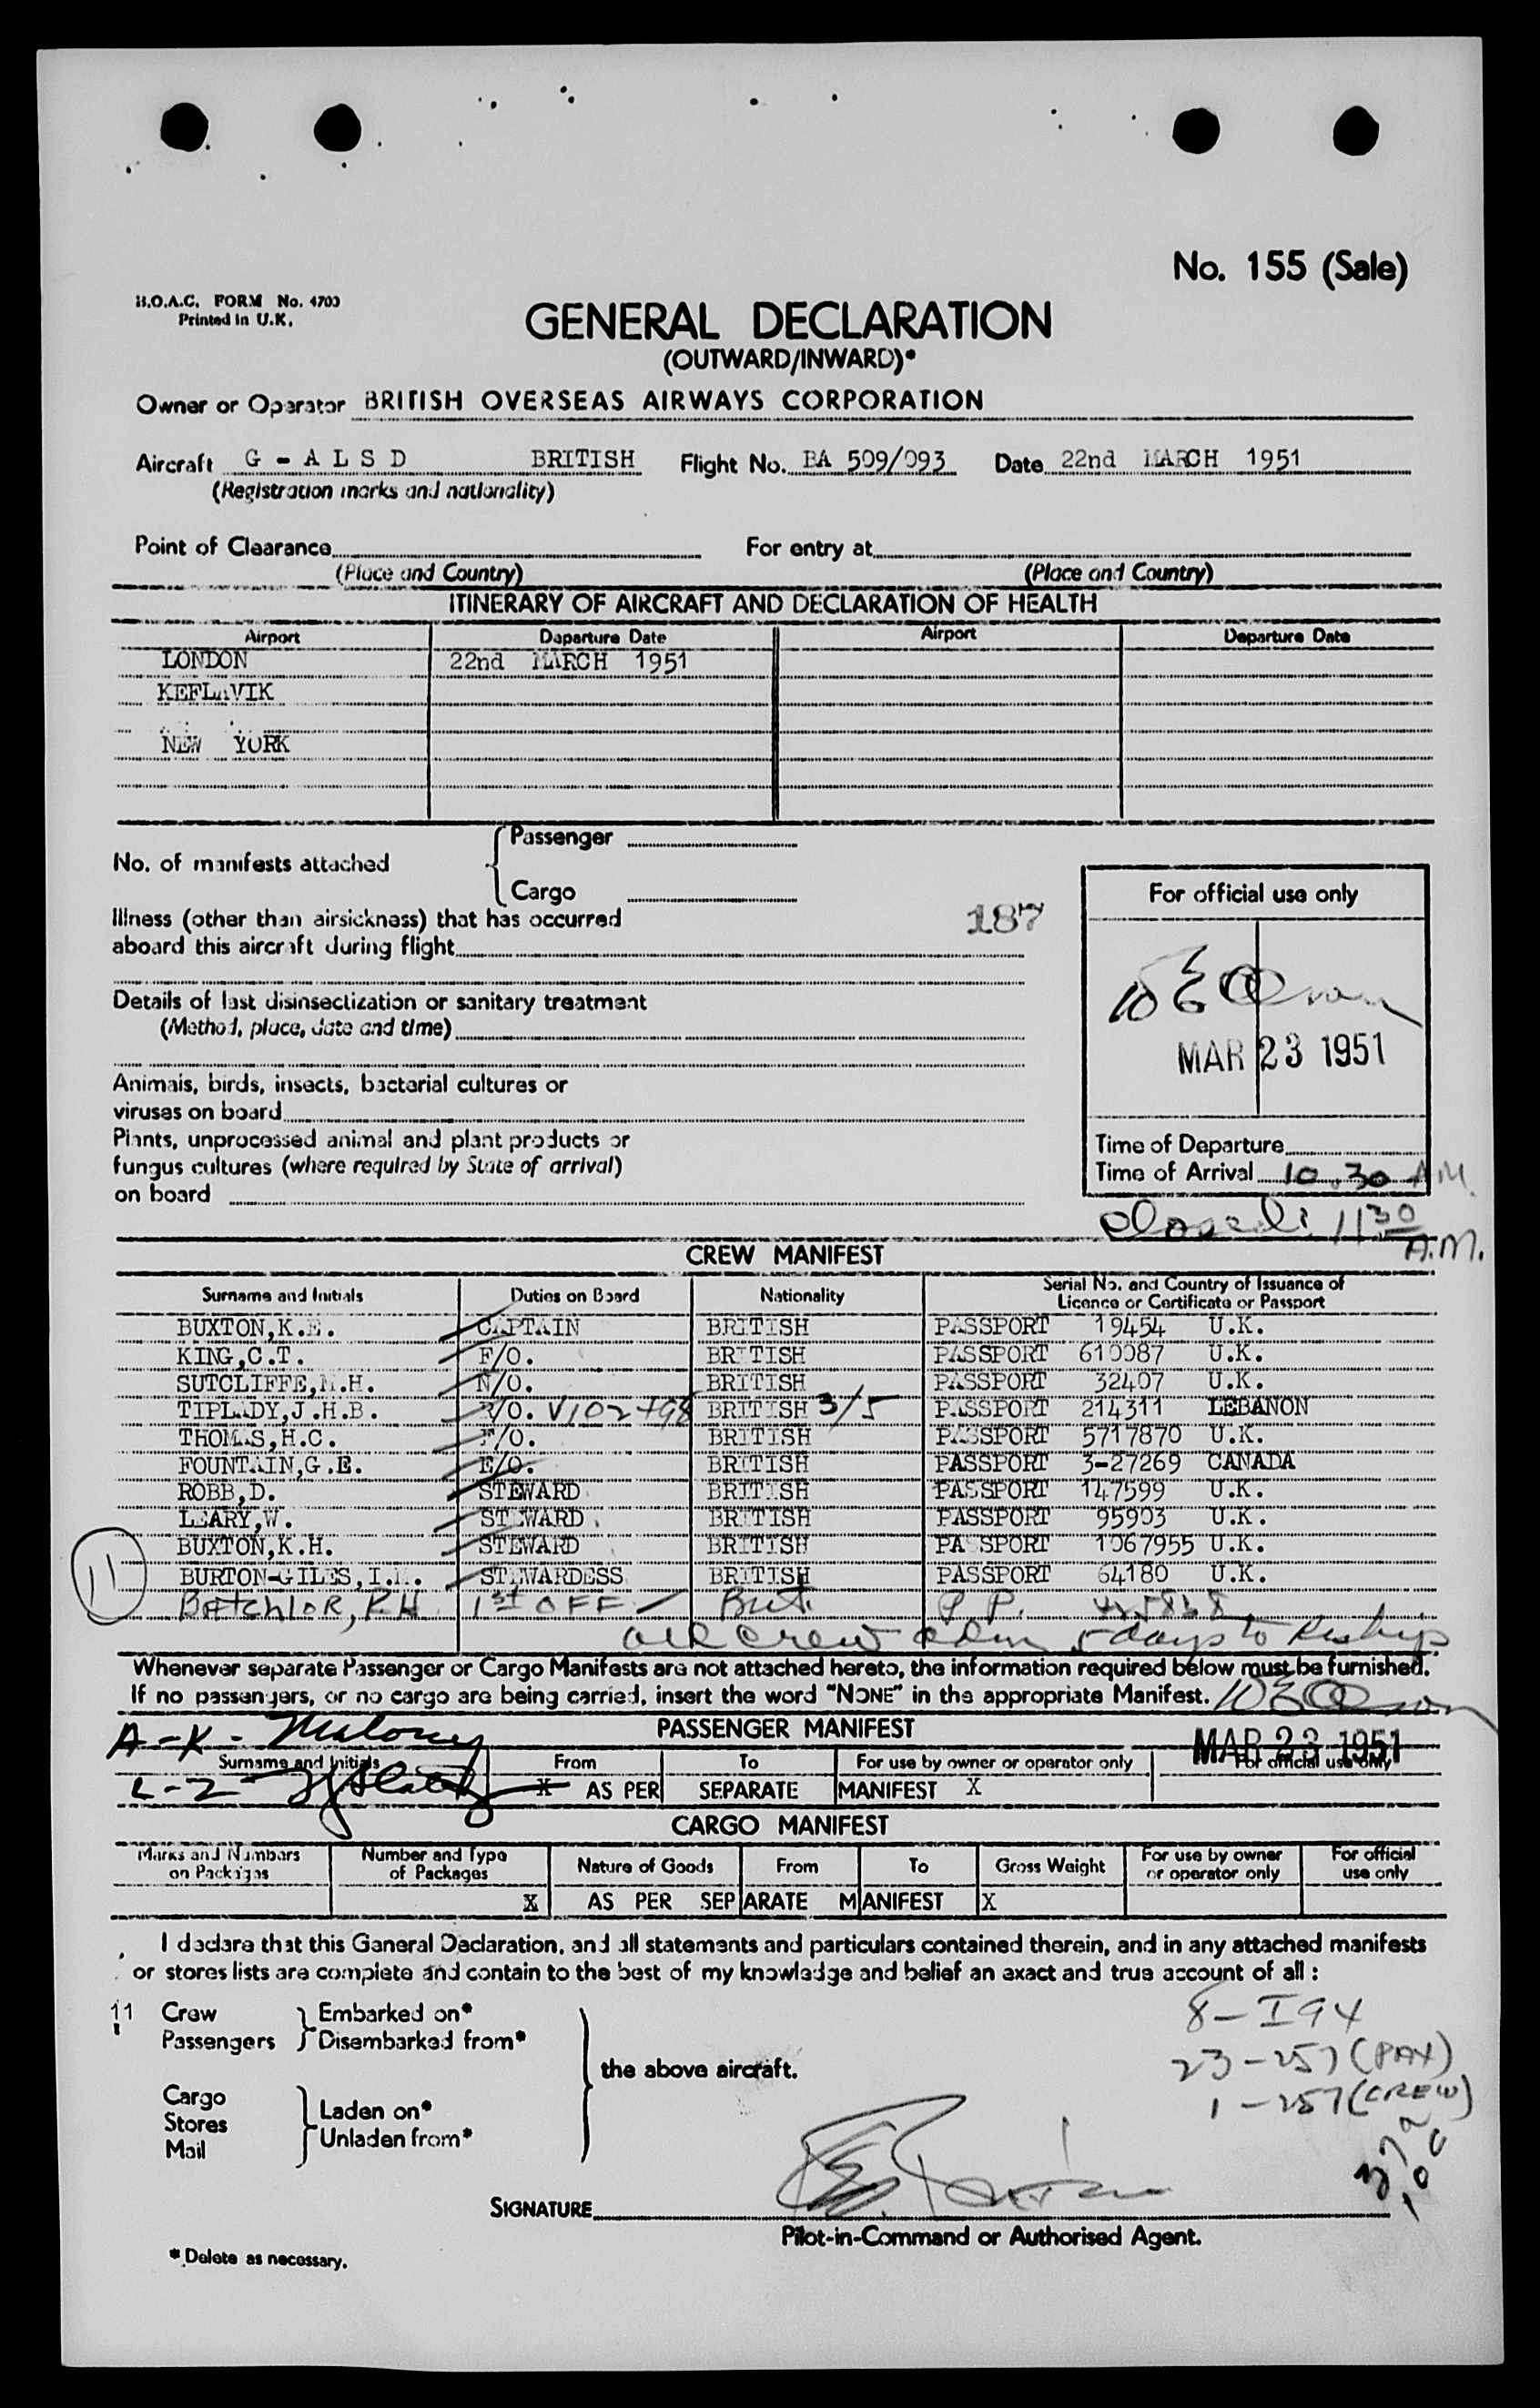 No. 155 (Sale)
B.O.A.C. FORM No. 4703
Printed in U.K.
GENERAL DECLARATION
(OUTWARD/INWARD)*
Owner or Operator BRITISH OVERSEAS AIRWAYS CORPORATION
Aircraft G - A L S D BRITISH Flight No. BA 509/093 Date 22nd MARCH 1951
(Registration marks and nationality)
Point of Clearance For entry at
(Place and Country) (Place and Country)
ITINERARY OF AIRCRAFT AND DECLARATION OF HEALTH
Airport Departure Date Airport Departure Date
LONDON 22nd MARCH 1951
KEFLAVIK
NEW YORK
No. of manifests attached
Passenger
Cargo
Illness (other than airsickness) that has occurred
aboard this aircraft during flight
187
Details of last disinsectization or sanitary treatment
(Method, place, date and time)
Animals, birds, insects, bacterial cultures or
viruses on board
Plants, unprocessed animal and plant products or
fungus cultures (where required by State of arrival)
on board
For official use only
MAR 23 1951
Time of Departure
Time of Arrival 10.30 A.M.
closed: 11 30 A.M.
CREW MANIFEST
Surname and Initials Duties on Board Nationality Serial No. and Country of Issuance of
Licence or Certificate or Passport
BUXTON,K.E. CAPTAIN BRITISH PASSPORT 19454 U.K.
KING,C.T. F/O. BRITISH PASSPORT 610087 U.K.
SUTCLIFFE, .H. N/O. BRITISH PASSPORT 32407 U.K.
TIPLADY,J.H.B. R/O. V102498 BRITISH 3/5 PASSPORT 214311 LEBANON
THOMAS,H.C. F/O. BRITISH PASSPORT 5717870 U.K.
FOUNTAIN,G.E. E/O. BRITISH PASSPORT 3-27269 CANADA
ROBB,D. STEWARD BRITISH PASSPORT 147599 U.K.
LEARY,W. STEWARD BRITISH PASSPORT 95903 U.K.
BUXTON,K.H. STEWARD BRITISH PASSPORT 1067955 U.K.
11 BURTON-GILES,I. . STEWARDESS BRITISH PASSPORT 64180 U.K.
Batchlor, RH 1st OFF Brit. P.P.
all crew adm 5 days to
Whenever separate Passenger or Cargo Manifests are not attached hereto, the information required below must be furnished.
If no passengers, or no cargo are being carried, insert the word "NONE" in the appropriate Manifest.
A-K- Maloney
PASSENGER MANIFEST
MAR 23 1951
Surname and Initials From To For use by owner or operator only For official use only
L-Z X AS PER SEPARATE MANIFEST X
CARGO MANIFEST
Marks and Numbers on Packages Number and Type of Packages Nature of Goods From To Gross Weight For use by owner or operator only For official use only
X AS PER SEPARATE MANIFEST X
I declare that this General Declaration, and all statements and particulars contained therein, and in any attached manifests
or stores lists are complete and contain to the best of my knowledge and belief an exact and true account of all :
11 Crew
Passengers
Embarked on*
Disembarked from*
Cargo
Stores
Mail
Laden on*
Unladen from*
the above aircraft.
8-I94
23-257 (PAX)
1-257 (CREW)
SIGNATURE
Pilot-in-Command or Authorised Agent.
* Delete as necessary.